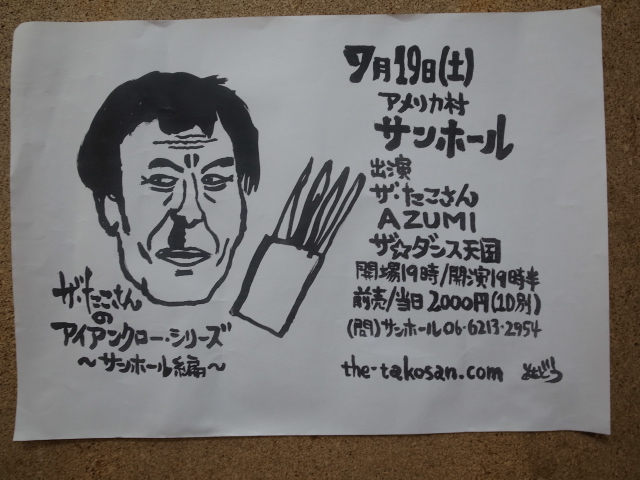 7月19日(土)
アメリカ村
サンホール
出演
ザ・たこさん
AZUMI
ザ☆ダンス天国
開場19時/開演19時半
前売/当日2000円(1D別)
(問)サンホール06・6213・2954
the-takosan.com
ザ・たこさん
の
アイアンクロー・シリーズ
～サンホール編～